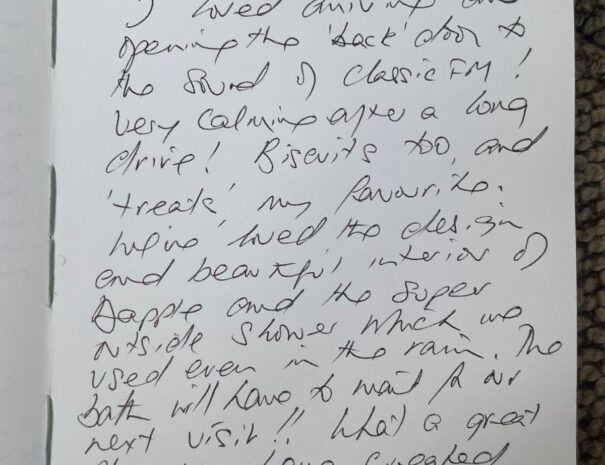 I loved arriving and
opening the 'back' door to
the sound of Classic FM!
Very calming after a long
drive! Biscuits too, and
'treats', my favourite.
We've loved the design
and beautiful interior of
Dapple and the super
outside shower which we
used even in the rain. The
bath will have to wait for our
next visit!! What a great
have created